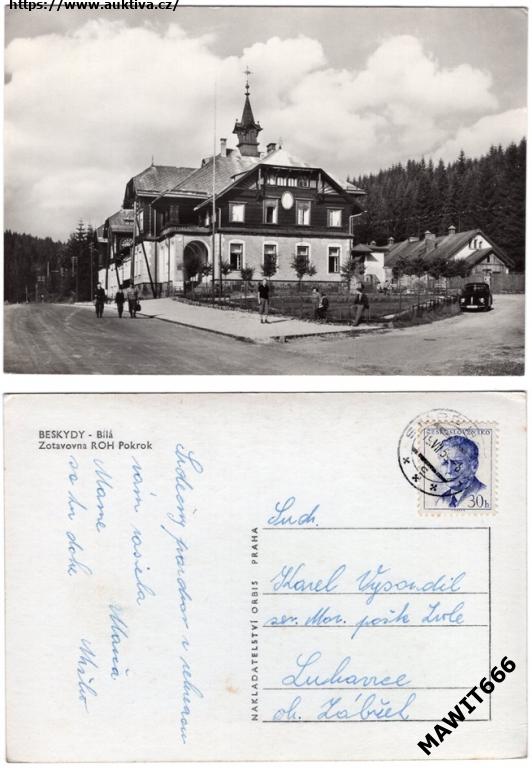 https://www.auktiva.cz/
BESKYDY - Bílá
Zotavovna ROH Pokrok
Srdečný pozdrav z rekreace
vám posílá
Máme
se tu dobře
NAKLADATELSTVÍ ORBIS PRAHA
ČESKOSLOVENSKO
30h
Soudr.
Karel Vysondil
pošta Zvole
Lukavice
ok. Zábřeh
MAWIT666